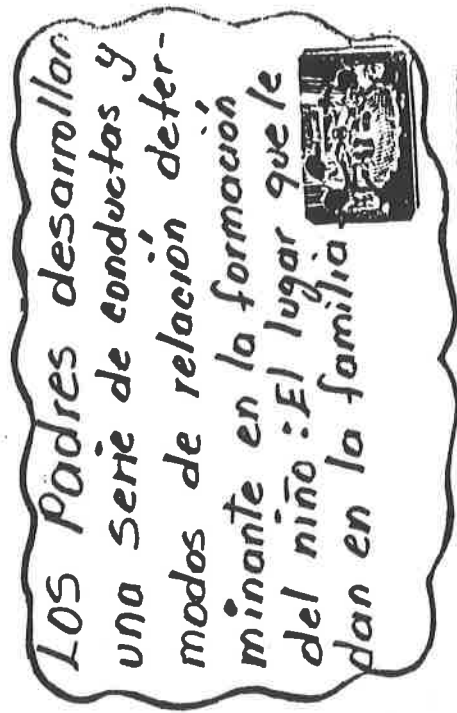 Los Padres desarrollan
una serie de conductas y
modos de relación deter-
minante en la formación
del niño : El lugar que le
dan en la familia